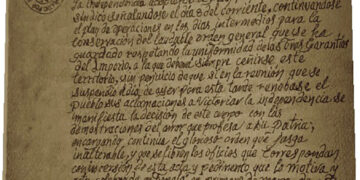 la independencia
síndico señalandose el día del corriente, continuandose
el plan de operaciones en los dias, intermedios para la
conservacion del laudable orden general que se ha
guardado respetando la uniformidad de las tres Garantias
del Imperio a la que deverá siempre ceñirse, este
territorio, sin perjuicio de que si en la reunion que se
suspendio el dia, de ayer para esta tarde renobase el
pueblo sus aclamaciones a victoriar la independencia se
manifiesta la decision de este cuerpo con las
demostraciones del amor que profesa á su Patria;
encargando continue el glorioso orden que
inalterable, y que se libren los oficios que correspondan
con incersion de esta acta y pedimento que la motiva, y